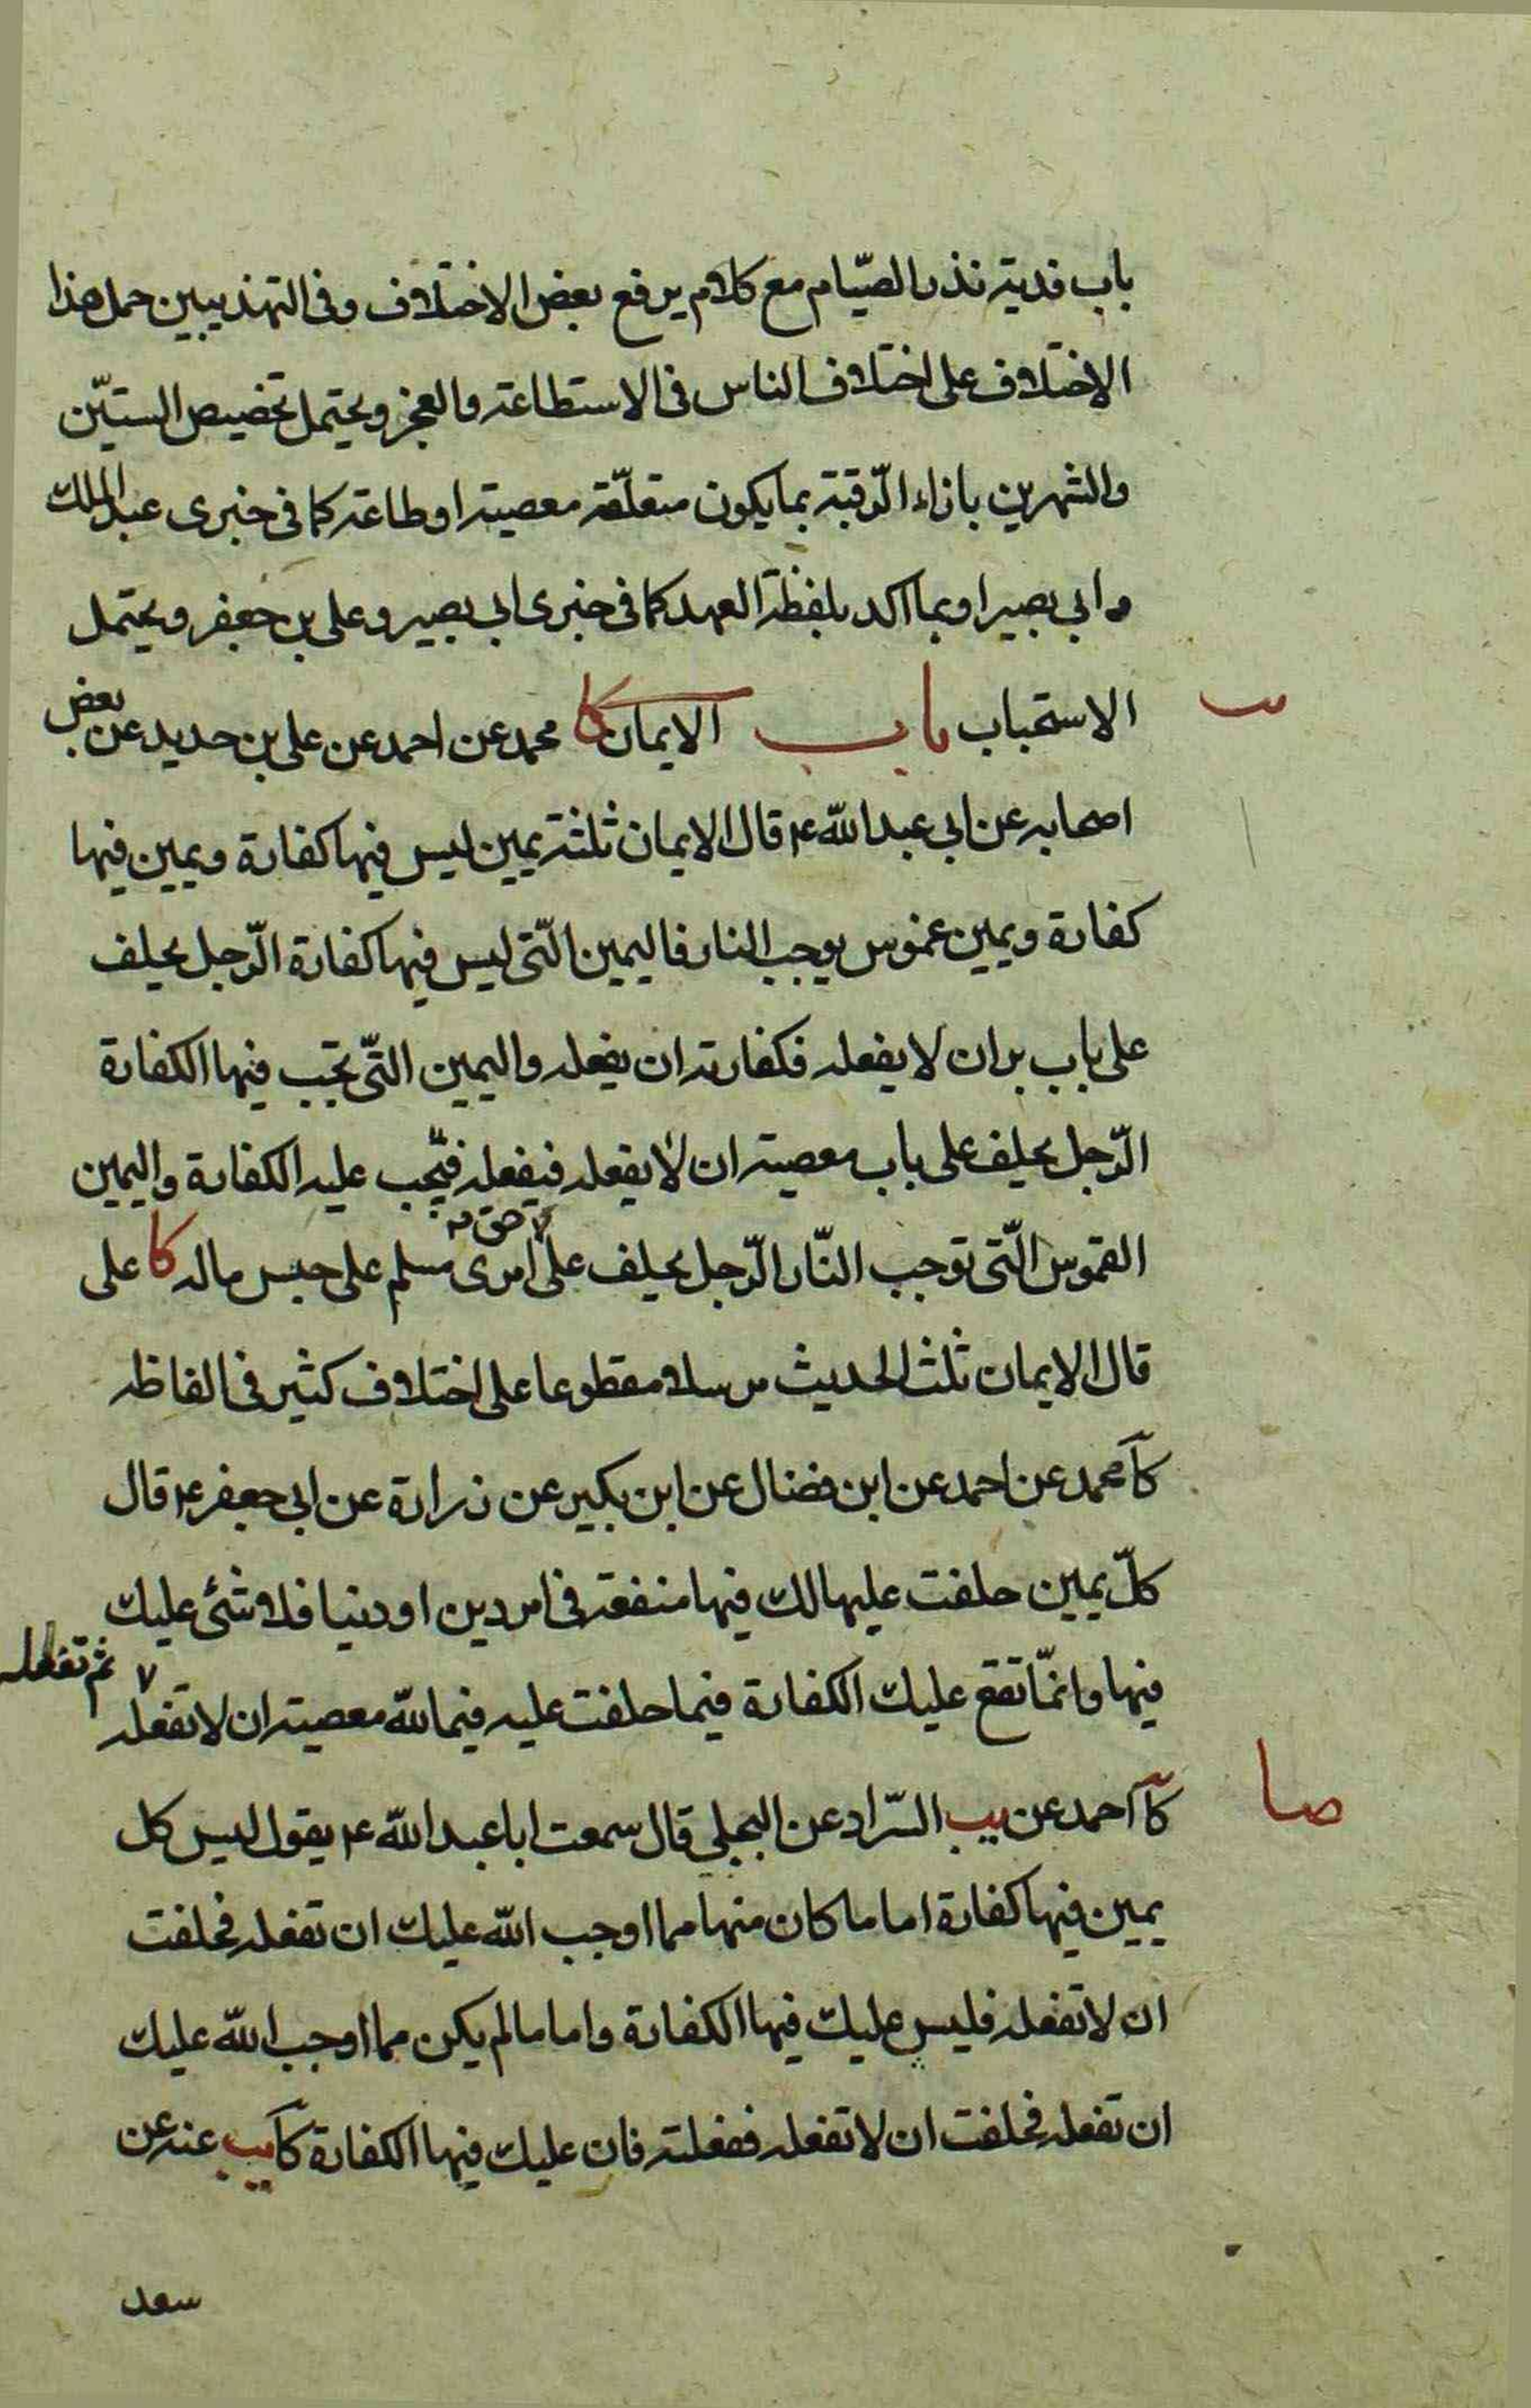 باب فدية نذر الصّيام مع كلام يرفع بعض الاختلاف وفى التهذيبين حمل هذا
الاختلاف على اختلاف الناس فى الاستطاعة والعجز ويحتمل تخصيص الستيّن
والشهرين بازاء الرّقبة بما يكون متعلّقه معصية او طاعة كما فى خبرى عبد الملك
و ابى بصير او بما اكد بلفظة العهد كما فى خبرى ابى بصير و على بن جعفر ويحتمل
الاستحباب باب الايمان كا محمد عن احمد عن على بن حديد عن بعض
اصحابه عن ابى عبد الله ع قال الايمان ثلثة يمين ليس فيها كفارة ويمين فيها
كفارة ويمين غموس يوجب النار فاليمين الّتى ليس فيها كفارة الرّجل يحلف
على باب بر ان لا يفعله فكفارته ان يفعله واليمين التّى تجب فيها الكفارة
الرّجل يحلف على باب معصية ان لا يفعله فيفعله فتجب عليه الكفارة واليمين
الغموس الّتى توجب النّار الرّجل يحلف على امرى مسلم على حبس ماله كا على
حق
قال الايمان ثلث الحديث مرسلا مقطوعا على اختلاف كثير فى الفاظه
كا محمد عن احمد عن ابن فضال عن ابن بكير عن زرارة عن ابى جعفر ع قال
كلّ يمين حلفت عليها لك فيها منفعة فى امر دين او دنيا فلا شئ عليك
فيها وانمّا تقع عليك الكفارة فيما حلفت عليه فيما لله معصية ان لا تفعله
ثم تفعله
كا احمد عن يب السّراد عن البجلى قال سمعت ابا عبد الله ع يقول ليس كل
صا
يمين فيها كفارة اما ما كان منها مما اوجب الله عليك ان تفعله فحلفت
ان لا تفعله فليس عليك فيها الكفارة واما ما لم يكن مما اوجب الله عليك
ان تفعله فحلفت ان لا تفعله ففعلته فان عليك فيها الكفارة كا يب عنه عن
سعد